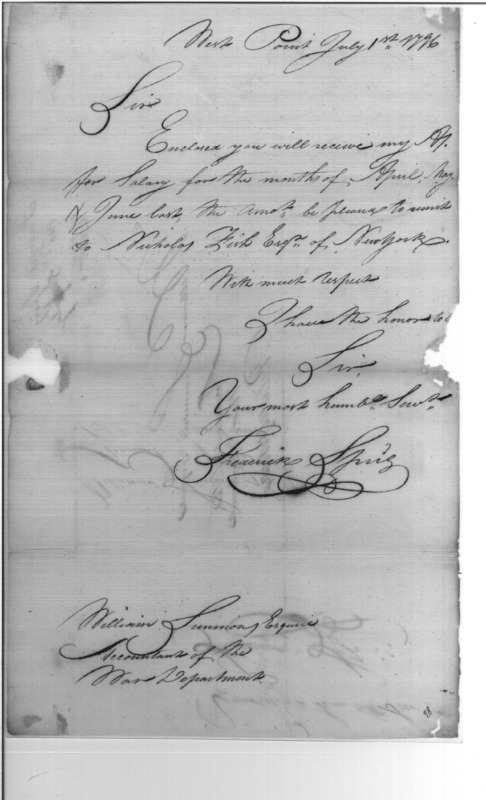 West Point July 1st. 1796
Sir
Enclosed you will receive my Ap.
for Salary for the months of April, May,
& June last, the Amot. be pleased to remit
to Nicholas Fish Esqr. of New York.
With much respect
I have the honor to
Sir,
Your most humbe. Servt.
Frederick
William Simmons Esquire
Accountant of the
War Department
28